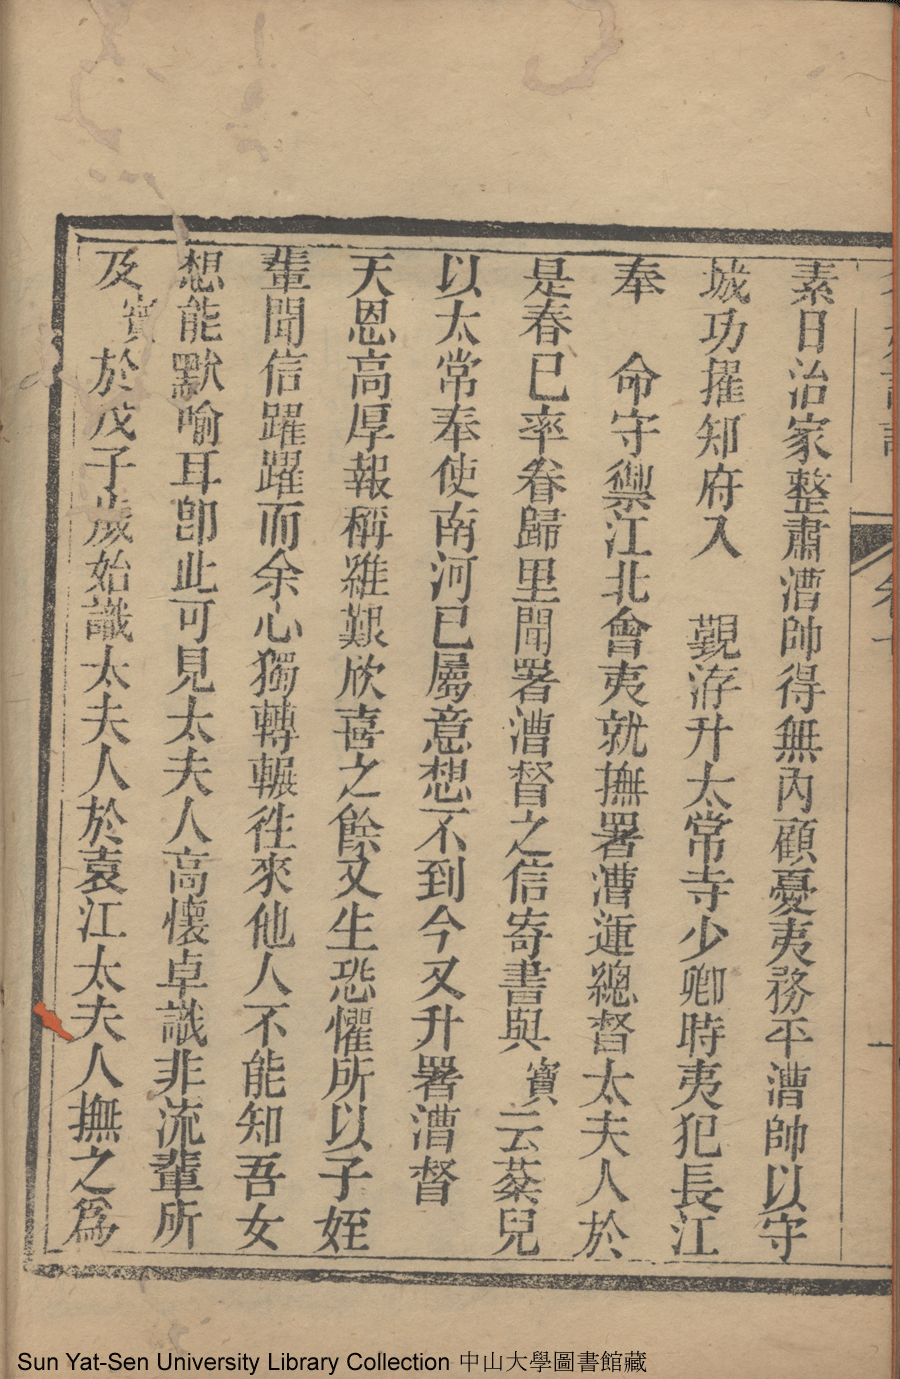 素日治家整肅漕帥得無內顧憂夷務平漕帥以守
城功擢知府入　覲洊升太常寺少卿時夷犯長江
奉　命守禦江北會夷就撫署漕運總督太夫人於
是春已率眷歸里聞署漕督之信寄書與寶云蓁兒
以太常奉使南河已屬意想不到今又升署漕督
天恩高厚報稱維艱欣喜之餘又生恐懼所以子姪
輩聞信躍躍而余心獨轉輾徃來他人不能知吾女
想能默喻耳卽此可見太夫人高懷卓識非流輩所
及寶於戊子歲始識太夫人於袁江太夫人撫之爲
Sun Yat-Sen University Library Collection 中山大學圖書館藏